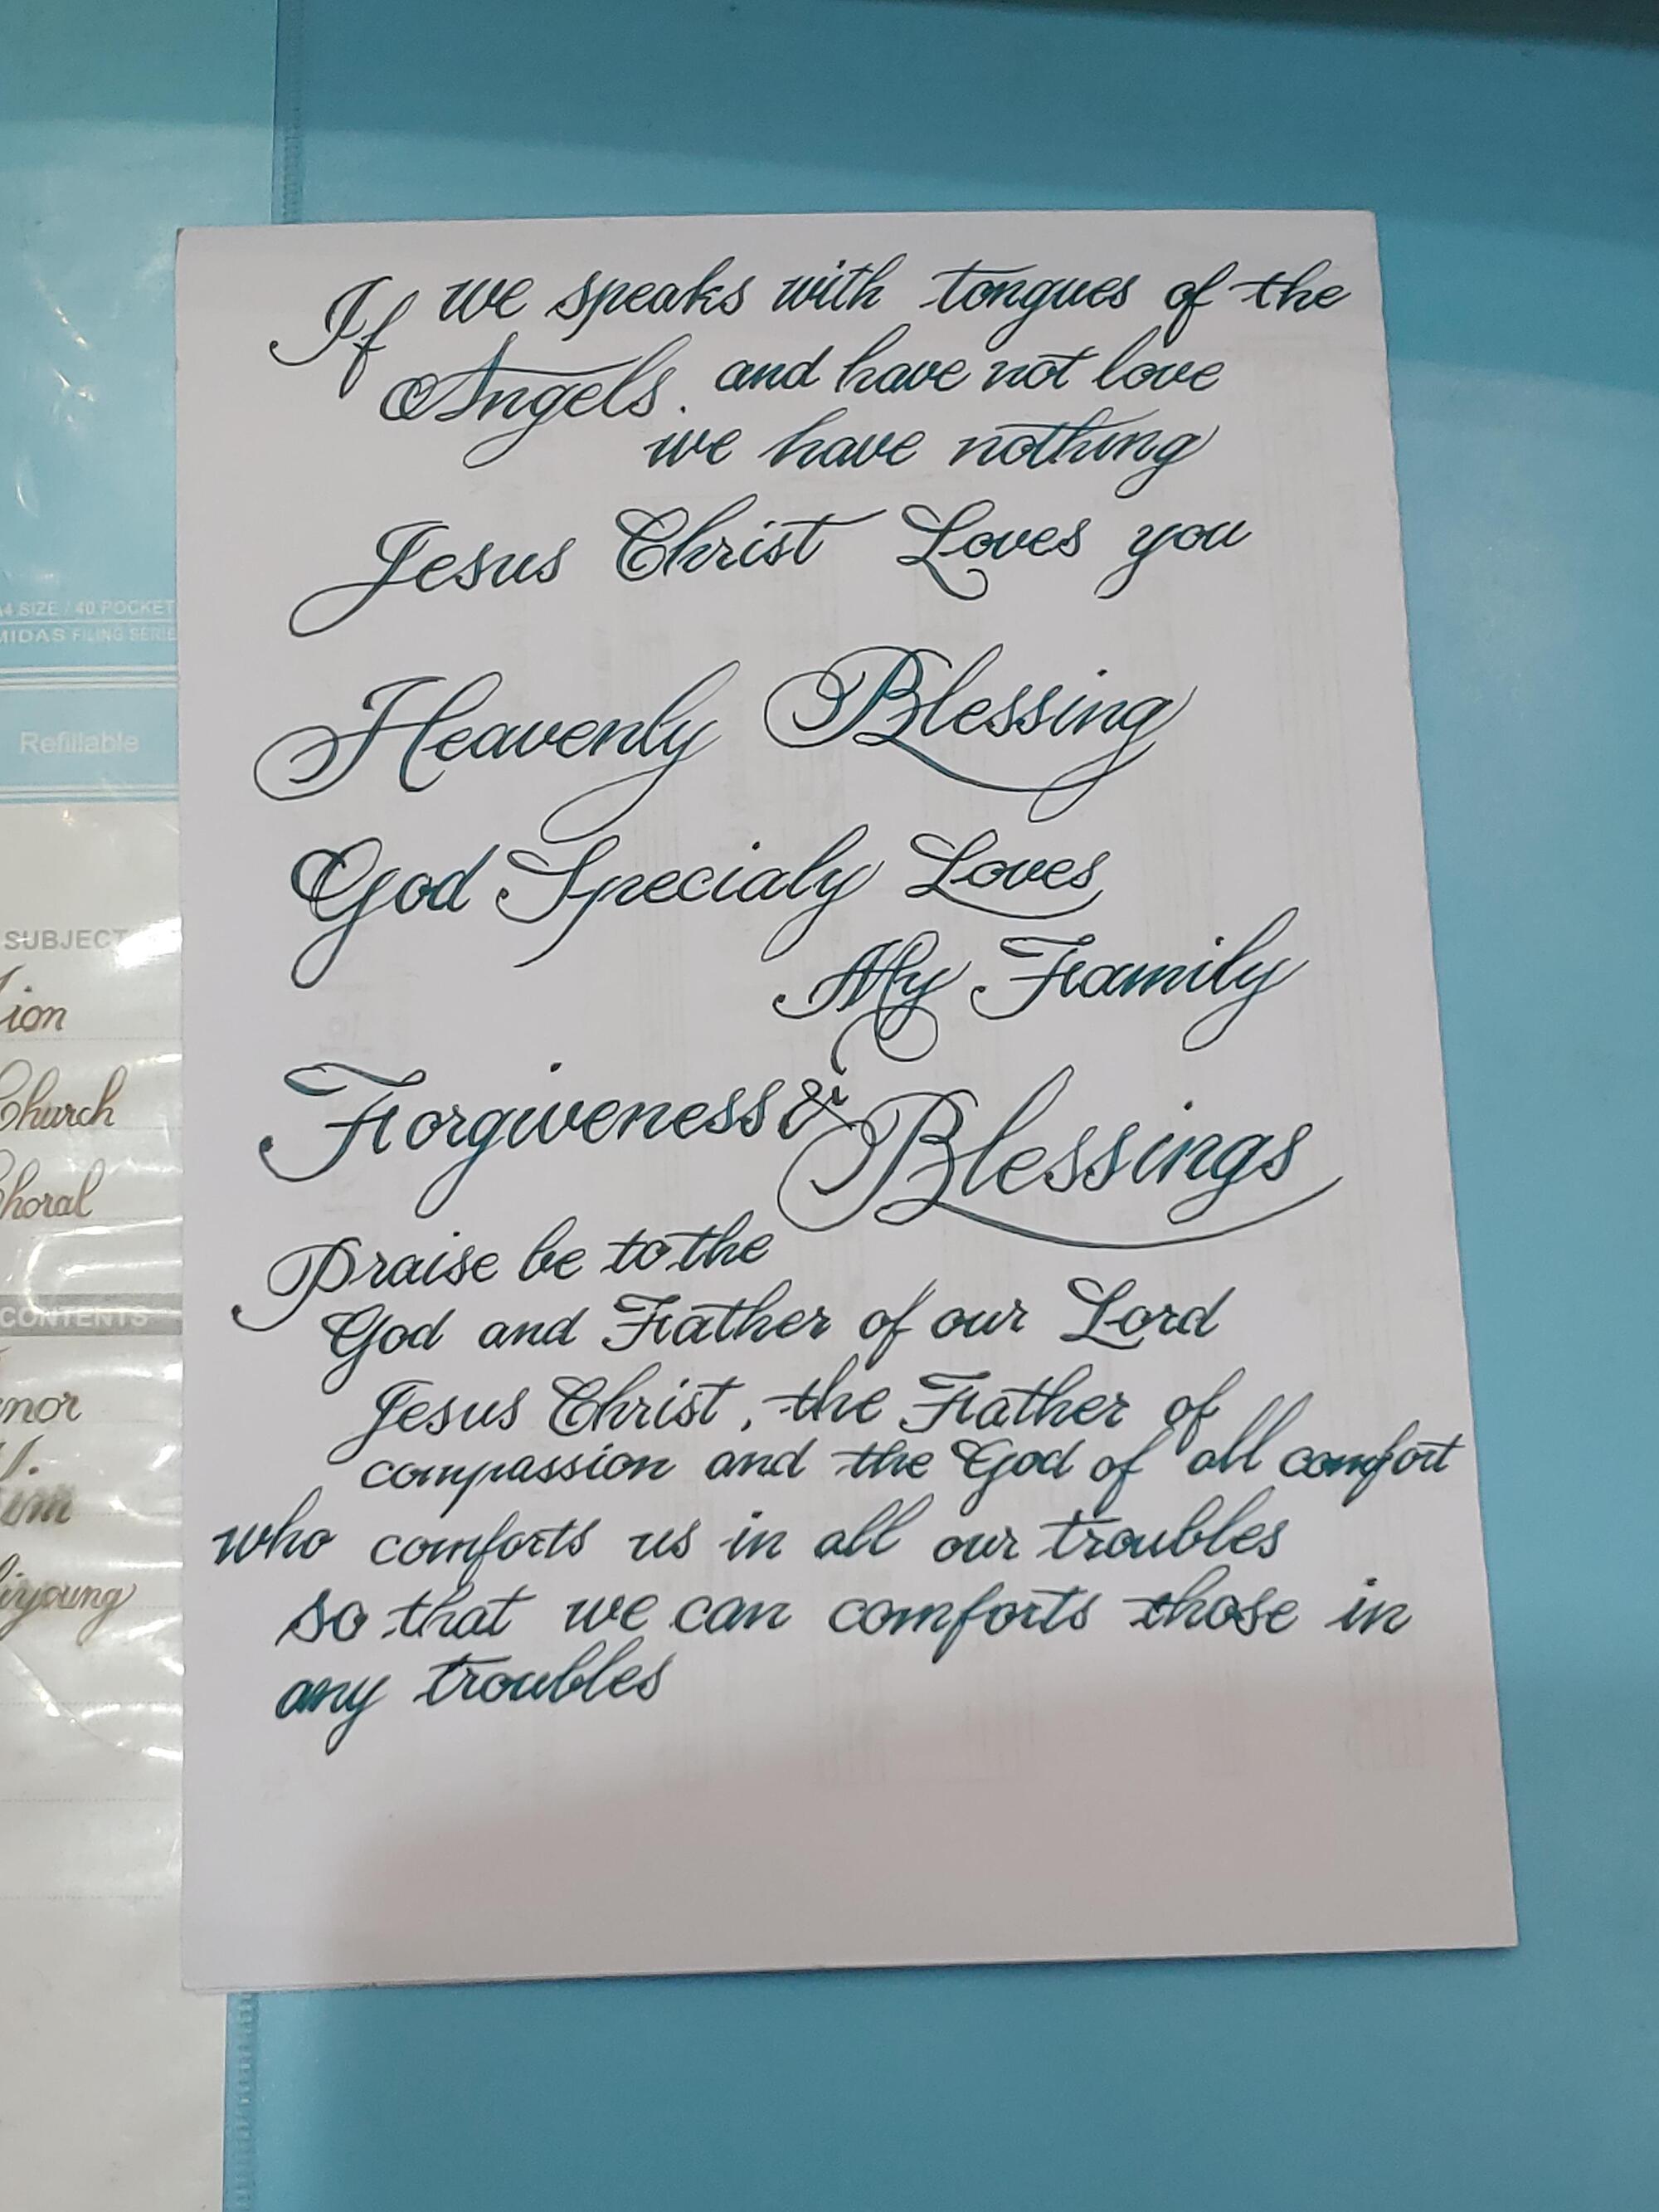 If we speaks with tongues of the
Angels. and have not love
we have nothing
Jesus Christ Loves you
Heavenly Blessing
God Specialy Loves
My Family
Forgiveness & Blessings
Praise be to the
God and Father of our Lord
Jesus Christ, the Father of
compassion and the God of all comfort
who comforts us in all our troubles
so that we can comforts those in
any troubles
A4 SIZE / 40 POCKET
MIDAS FILING SERIE
Refillable
SUBJECT
Church
Choral
CONTENTS